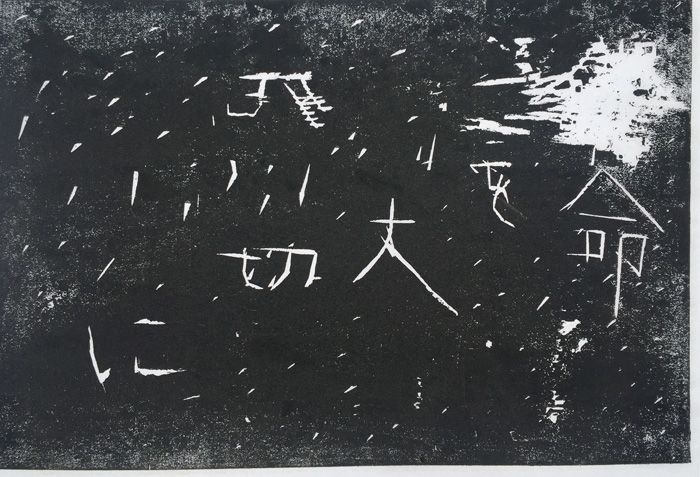 命を大切に